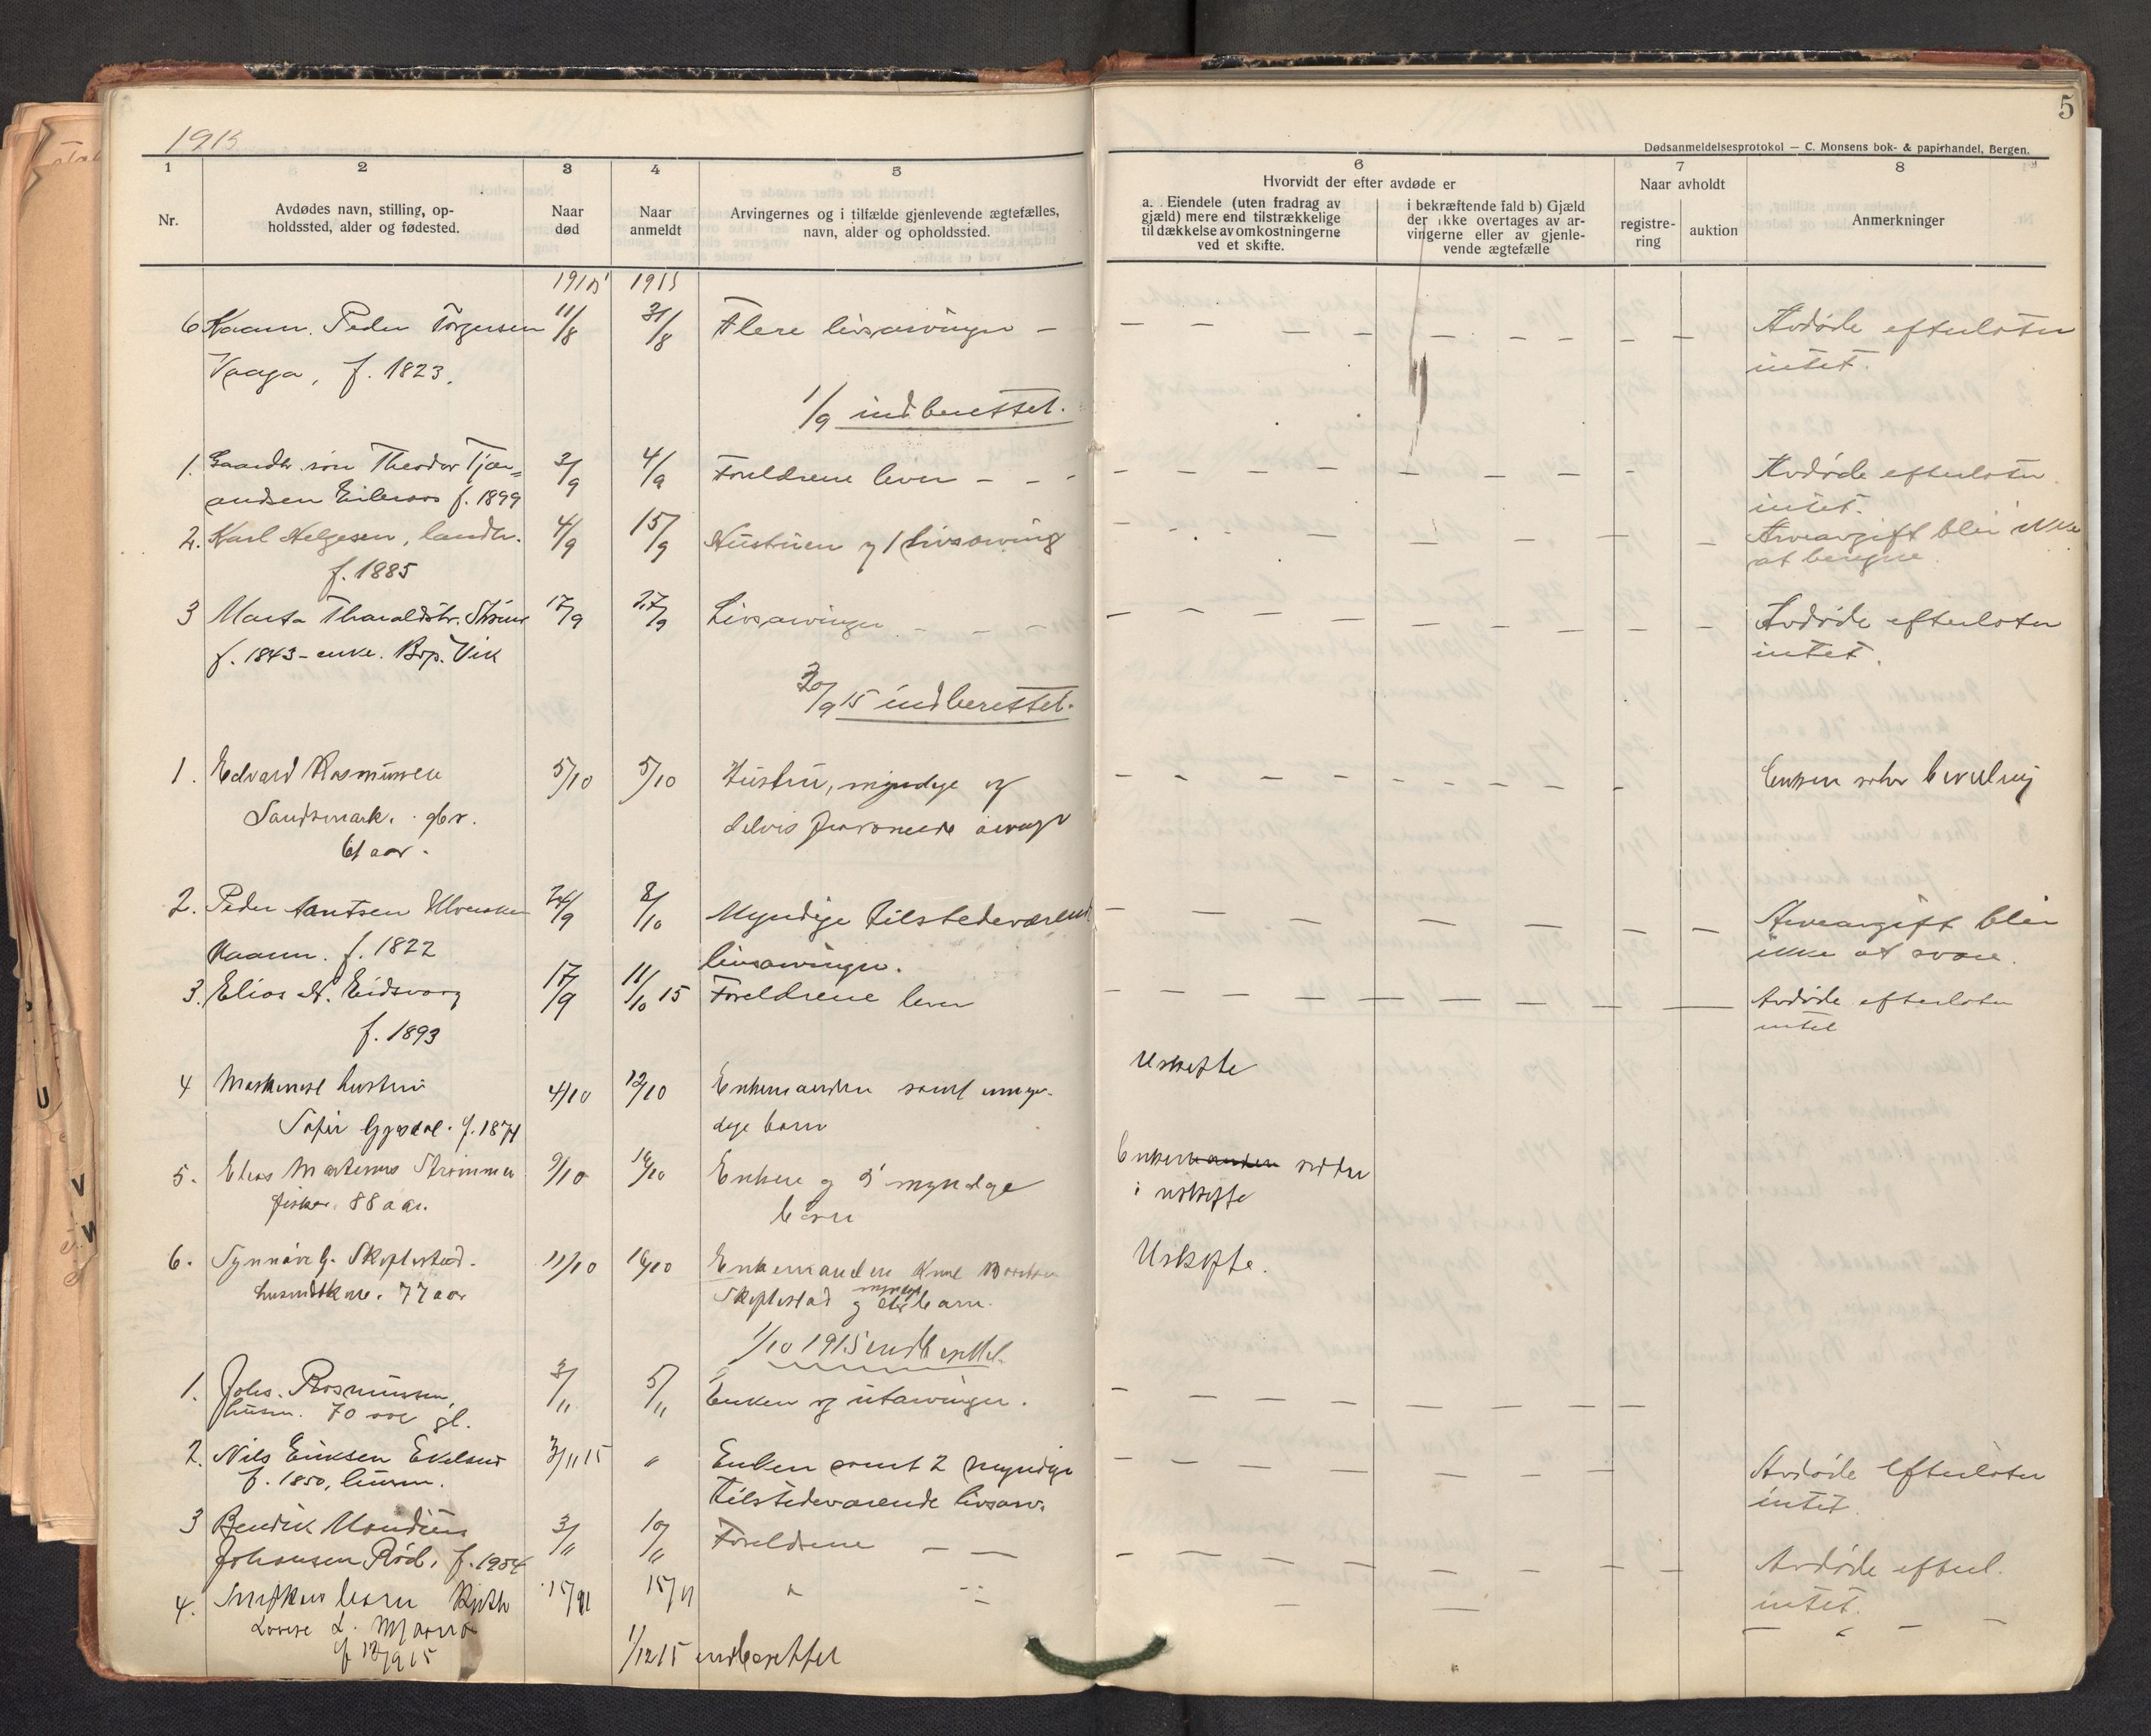 5
1915
Dødsanmeldelsesprotokol — C. Monsens bok- & papirhandel, Bergen.
1 2 3 4 5 6 7 8
Nr.
Avdødes navn, stilling, op-
holdssted, alder og fødested.
Naar
død
Naar
anmeldt
Arvingernes og i tilfælde gjenlevende ægtefælles,
navn, alder og opholdssted.
Hvorvidt der efter avdøde er
a. Eiendele (uten fradrag av
gjæld) mere end tilstrækkelige
til dækkelse av omkostningerne
ved et skifte.
i bekræftende fald b) Gjæld
der ikke overtages av ar-
vingerne eller av gjenle-
vende ægtefælle
Naar avholdt
registre-
ring
auktion
Anmerkninger
1915 1915
6 Kaarm. Peder Torgersen 11/8 31/8 Flere livsarvinger — Avdøde efterlater
Vaaga, f. 1823. intet.
1/9 indberettet.
1. Gaardbr. søn Theodor Tjer= 3/9 4/9 Foreldrene lever — — Avdøde efterlater
andsen f. 1899 intet.
2. Karl Helgesen, landh. 4/9 15/9 Hustruen og 1 livsarving Arveavgift blir ikke
f. 1885 at beregne.
3 Marta Tharaldsdtr. 17/9 27/9 Livsarvinger — — — Avdøde efterlater
f. 1843 - enke. Bop. Vik intet.
30/9 15 indberettet.
1. Edvard Rasmussen 5/10 5/10 Hustru, myndige og Enken
Sandsmark. gbr. delvis
61 aar.
2. Peder 24/9 8/10 Myndige tilstedeværende Arveavgift blir
Kaarm. f. 1822 livsarvinger. ikke at svare.
3. Elias A. Eidsvaag 17/9 11/10 15 Foreldrene lever Avdøde efterlater
f. 1893 intet
4 hustru 4/10 12/10 Enkemanden samt umyn- Uskifte
f. 1874 dige barn
5. Elias Martinus Strømmen 9/10 14/10 Enken og 5 myndige Enkemanden sidder
fisker. 88 aar. barn i uskifte
6. Synnøve G. 11/10 16/10 Enkemanden Uskifte.
77 aar og myndige barn.
1/10 1915 indberettet.
1. Johs. Rasmussen, 3/11 5/11 Enken og utarvinger.
husm. 70 aar gl.
2. Nils Eriksen 3/11 15 " Enken samt 2 myndige Avdøde efterlater
f. 1850, husm. tilstedeværende livsarv. intet.
3 Bendik 3/11 10/11 Foreldrene — — Avdøde efterl.
Johansen Rød, f. 1904 intet.
4. barn Ruth 15/11 15/11 "
Lovise L.
f 1915
1/12 15 indberettet